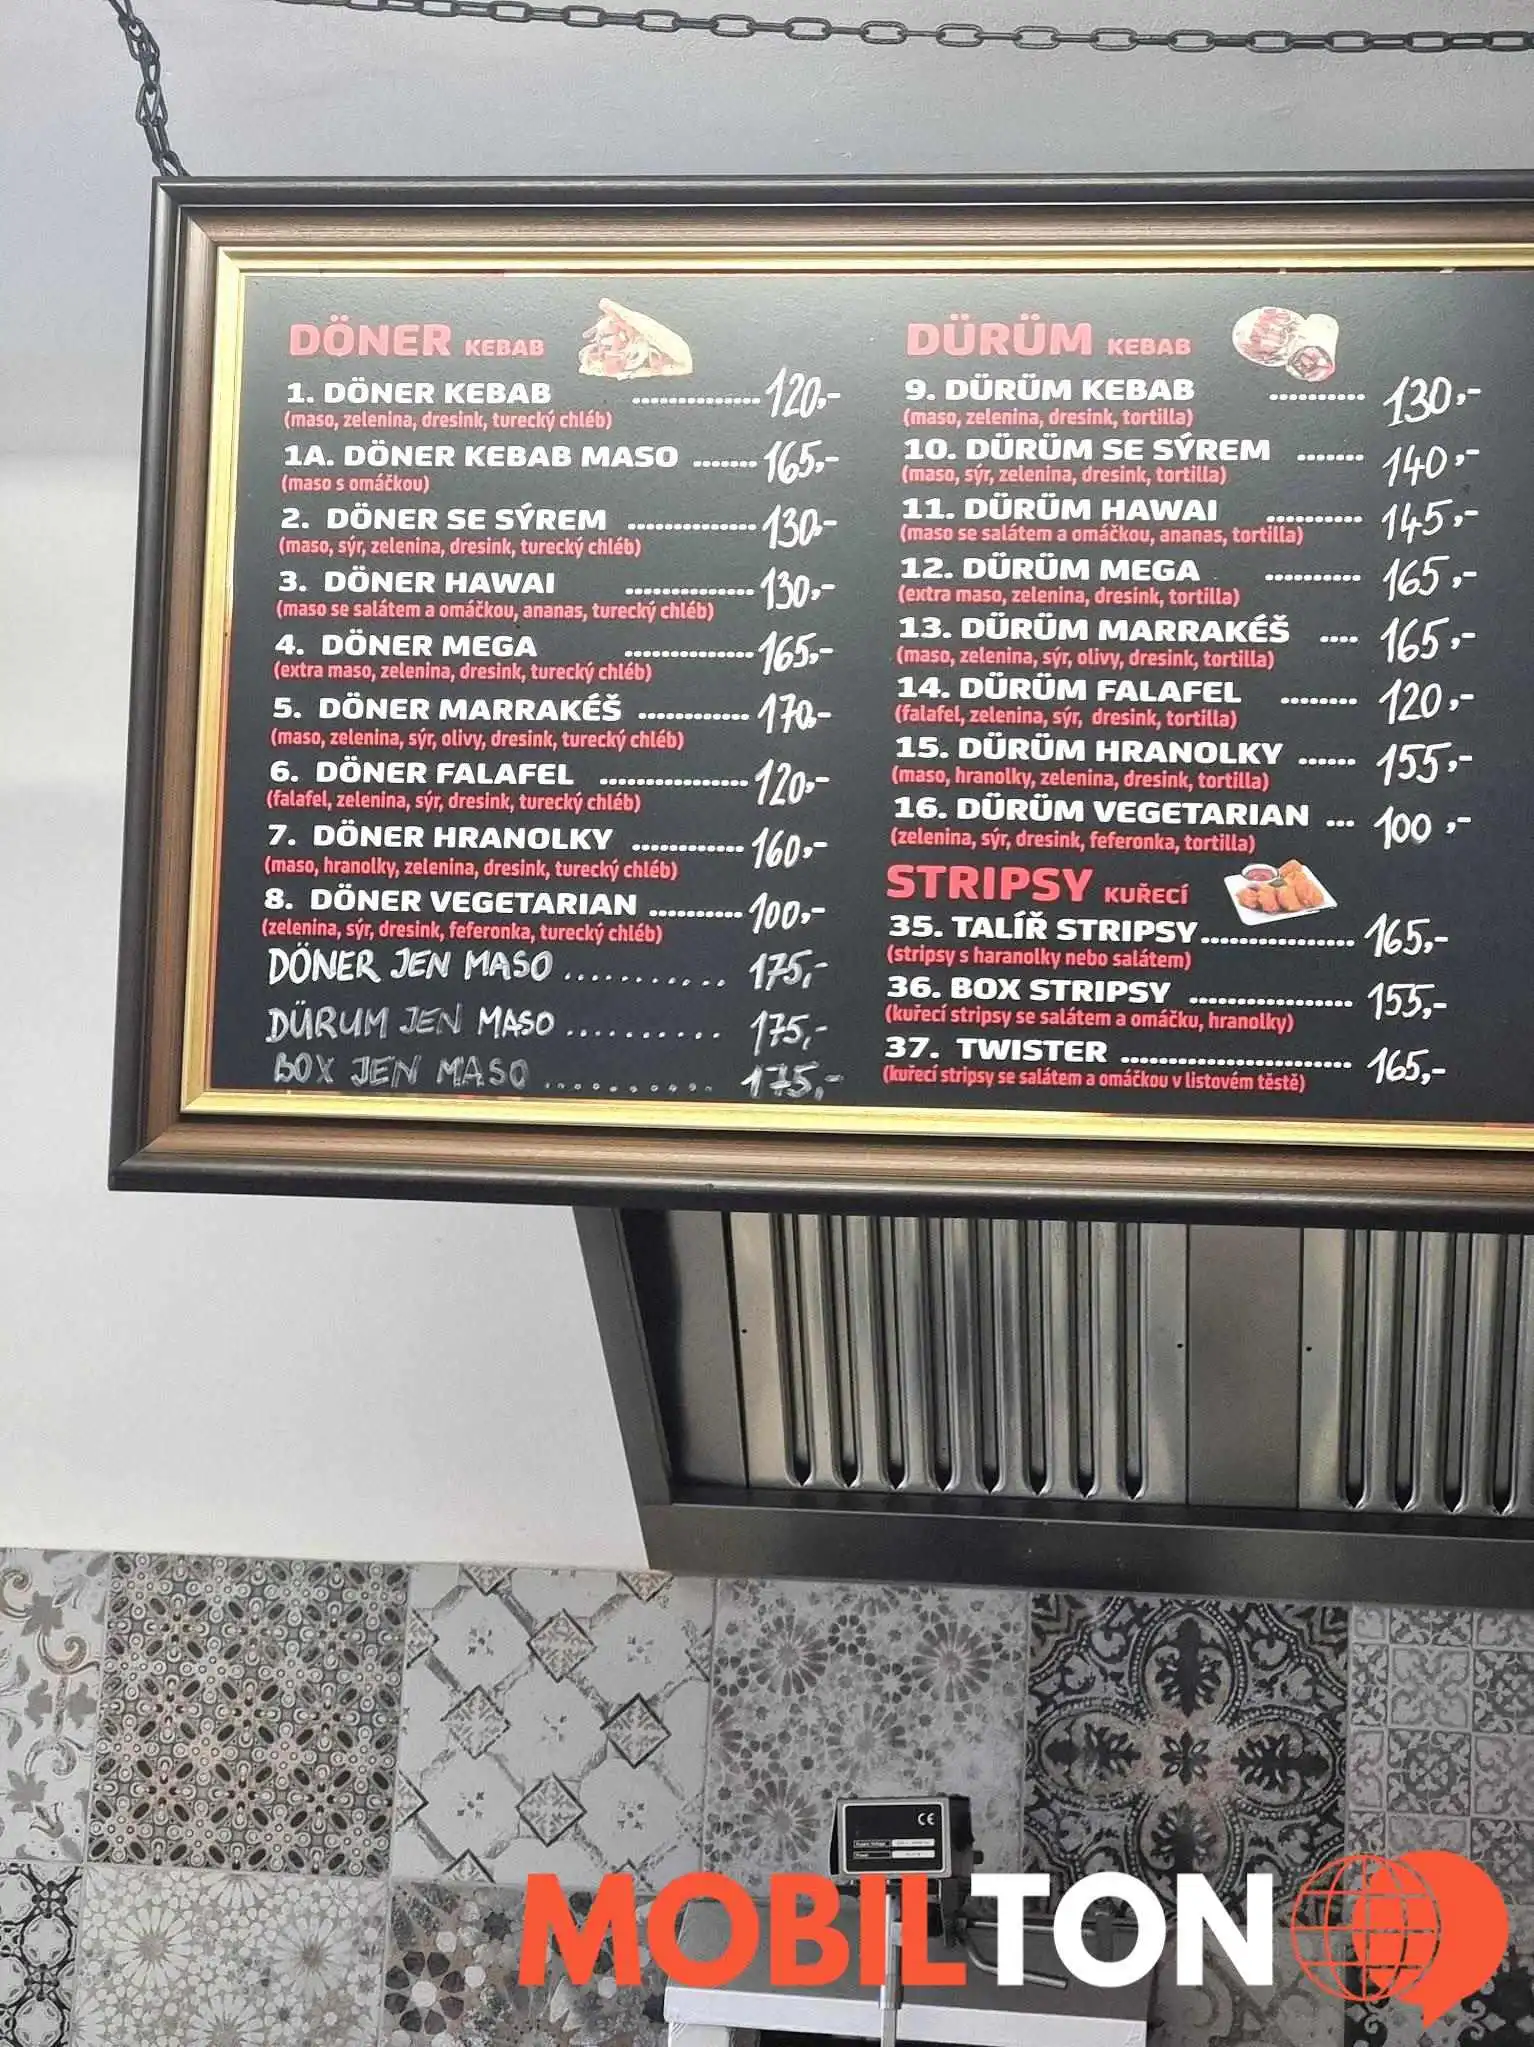 DÖNER KEBAB
1. DÖNER KEBAB ............. 120,-
(maso, zelenina, dresink, turecký chléb)
1A. DÖNER KEBAB MASO ....... 165,-
(maso s omáčkou)
2. DÖNER SE SÝREM ............. 130,-
(maso, sýr, zelenina, dresink, turecký chléb)
3. DÖNER HAWAI ............. 130,-
(maso se salátem a omáčkou, ananas, turecký chléb)
4. DÖNER MEGA ............. 165,-
(extra maso, zelenina, dresink, turecký chléb)
5. DÖNER MARRAKÉŠ ............ 170,-
(maso, zelenina, sýr, olivy, dresink, turecký chléb)
6. DÖNER FALAFEL ............... 120,-
(falafel, zelenina, sýr, dresink, turecký chléb)
7. DÖNER HRANOLKY ............ 160,-
(maso, hranolky, zelenina, dresink, turecký chléb)
8. DÖNER VEGETARIAN .......... 100,-
(zelenina, sýr, dresink, feferonka, turecký chléb)
DÖNER JEN MASO ........... 175,-
DÜRUM JEN MASO .......... 175,-
BOX JEN MASO ........... 175,-
DÜRÜM KEBAB
9. DÜRÜM KEBAB .......... 130,-
(maso, zelenina, dresink, tortilla)
10. DÜRÜM SE SÝREM ....... 140,-
(maso, sýr, zelenina, dresink, tortilla)
11. DÜRÜM HAWAI .......... 145,-
(maso se salátem a omáčkou, ananas, tortilla)
12. DÜRÜM MEGA .......... 165,-
(extra maso, zelenina, dresink, tortilla)
13. DÜRÜM MARRAKÉŠ .... 165,-
(maso, zelenina, sýr, olivy, dresink, tortilla)
14. DÜRÜM FALAFEL ........ 120,-
(falafel, zelenina, sýr, dresink, tortilla)
15. DÜRÜM HRANOLKY ...... 155,-
(maso, hranolky, zelenina, dresink, tortilla)
16. DÜRÜM VEGETARIAN ... 100,-
(zelenina, sýr, dresink, feferonka, tortilla)
STRIPSY KUŘECÍ
35. TALÍŘ STRIPSY................ 165,-
(stripsy s haranolky nebo salátem)
36. BOX STRIPSY ................. 155,-
(kuřecí stripsy se salátem a omáčku, hranolky)
37. TWISTER ........................ 165,-
(kuřecí stripsy se salátem a omáčkou v listovém těstě)
CE
MOBILTON